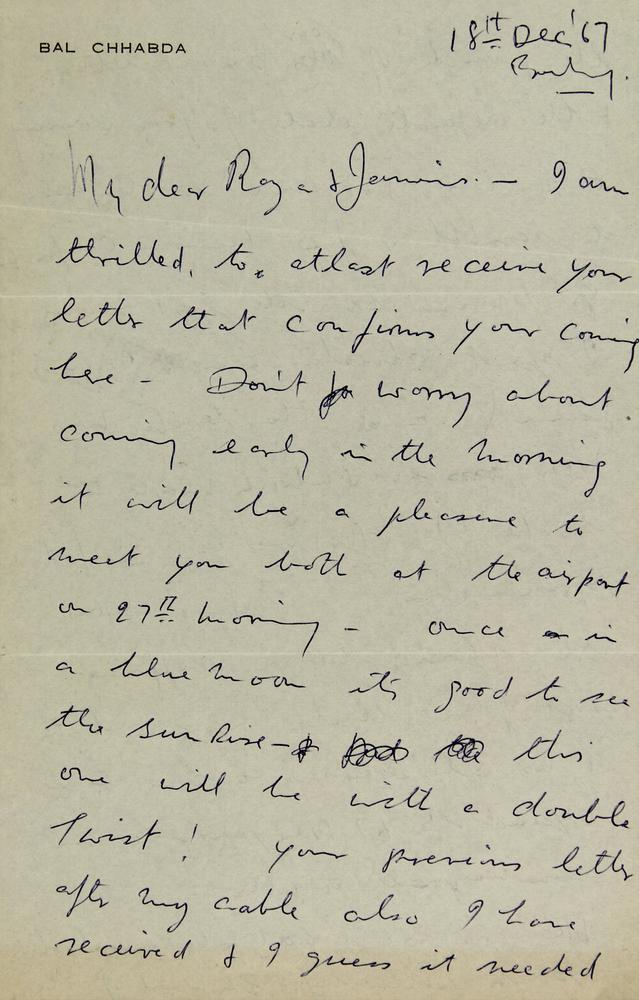 BAL CHHABDA
18th Dec '67
Bombay.
My dear Raza & Janine. — I am
thrilled, to, atlast receive your
letter that confirms your coming
here - Don't worry about
coming early in the morning
it will be a pleasure to
meet you both at the airport
on 27th morning - once in
a blue moon it's good to see
the sunrise - this
one will be with a double
twist! your previous letter
after my cable also I have
received & I guess it needed